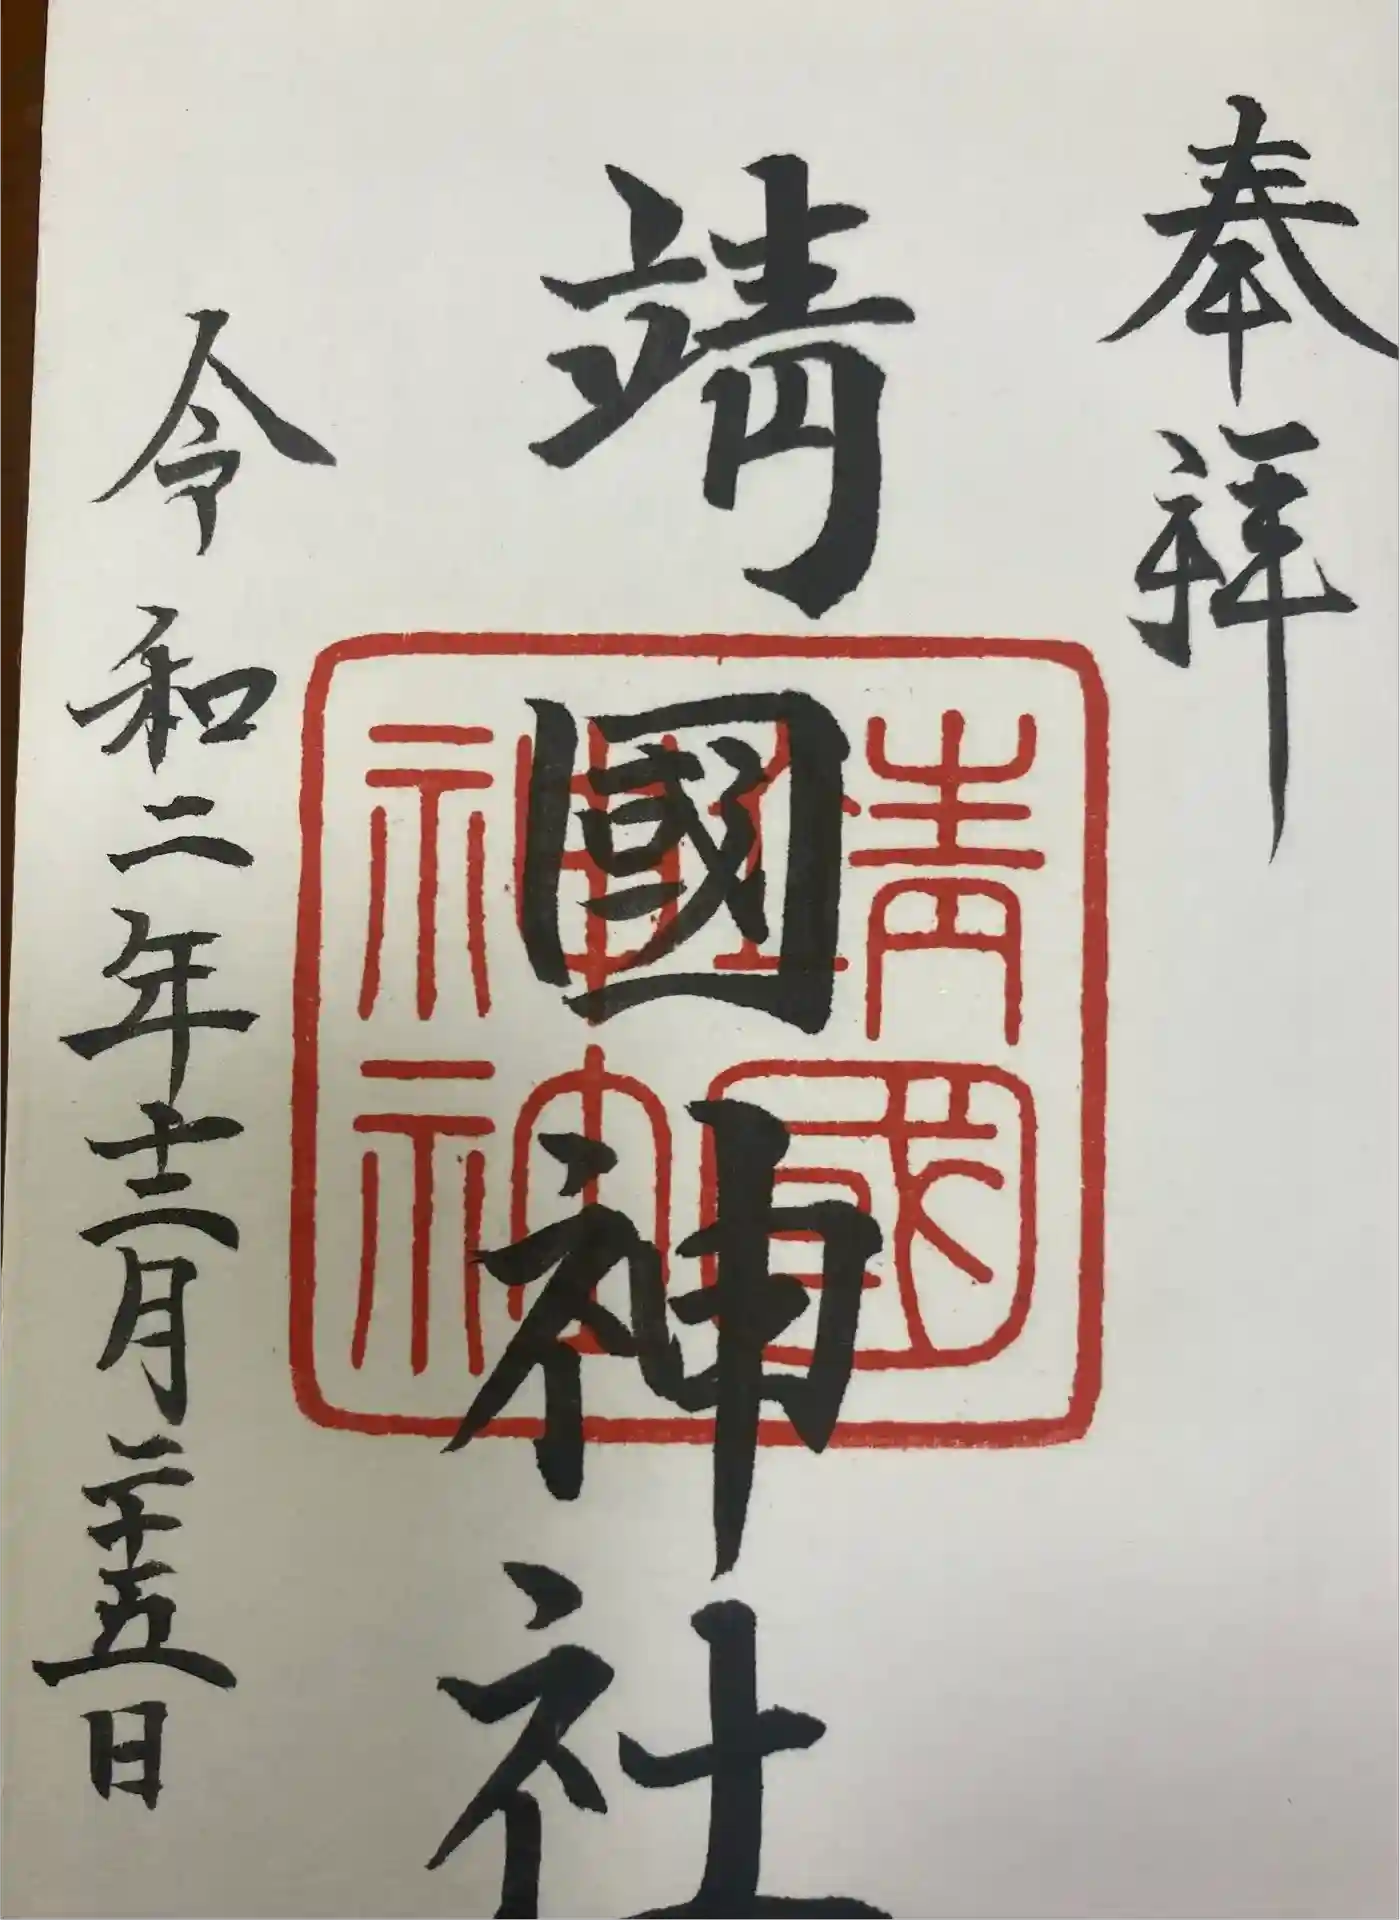 奉拝
靖國神社
令和二年十二月二十五日
靖國
神社